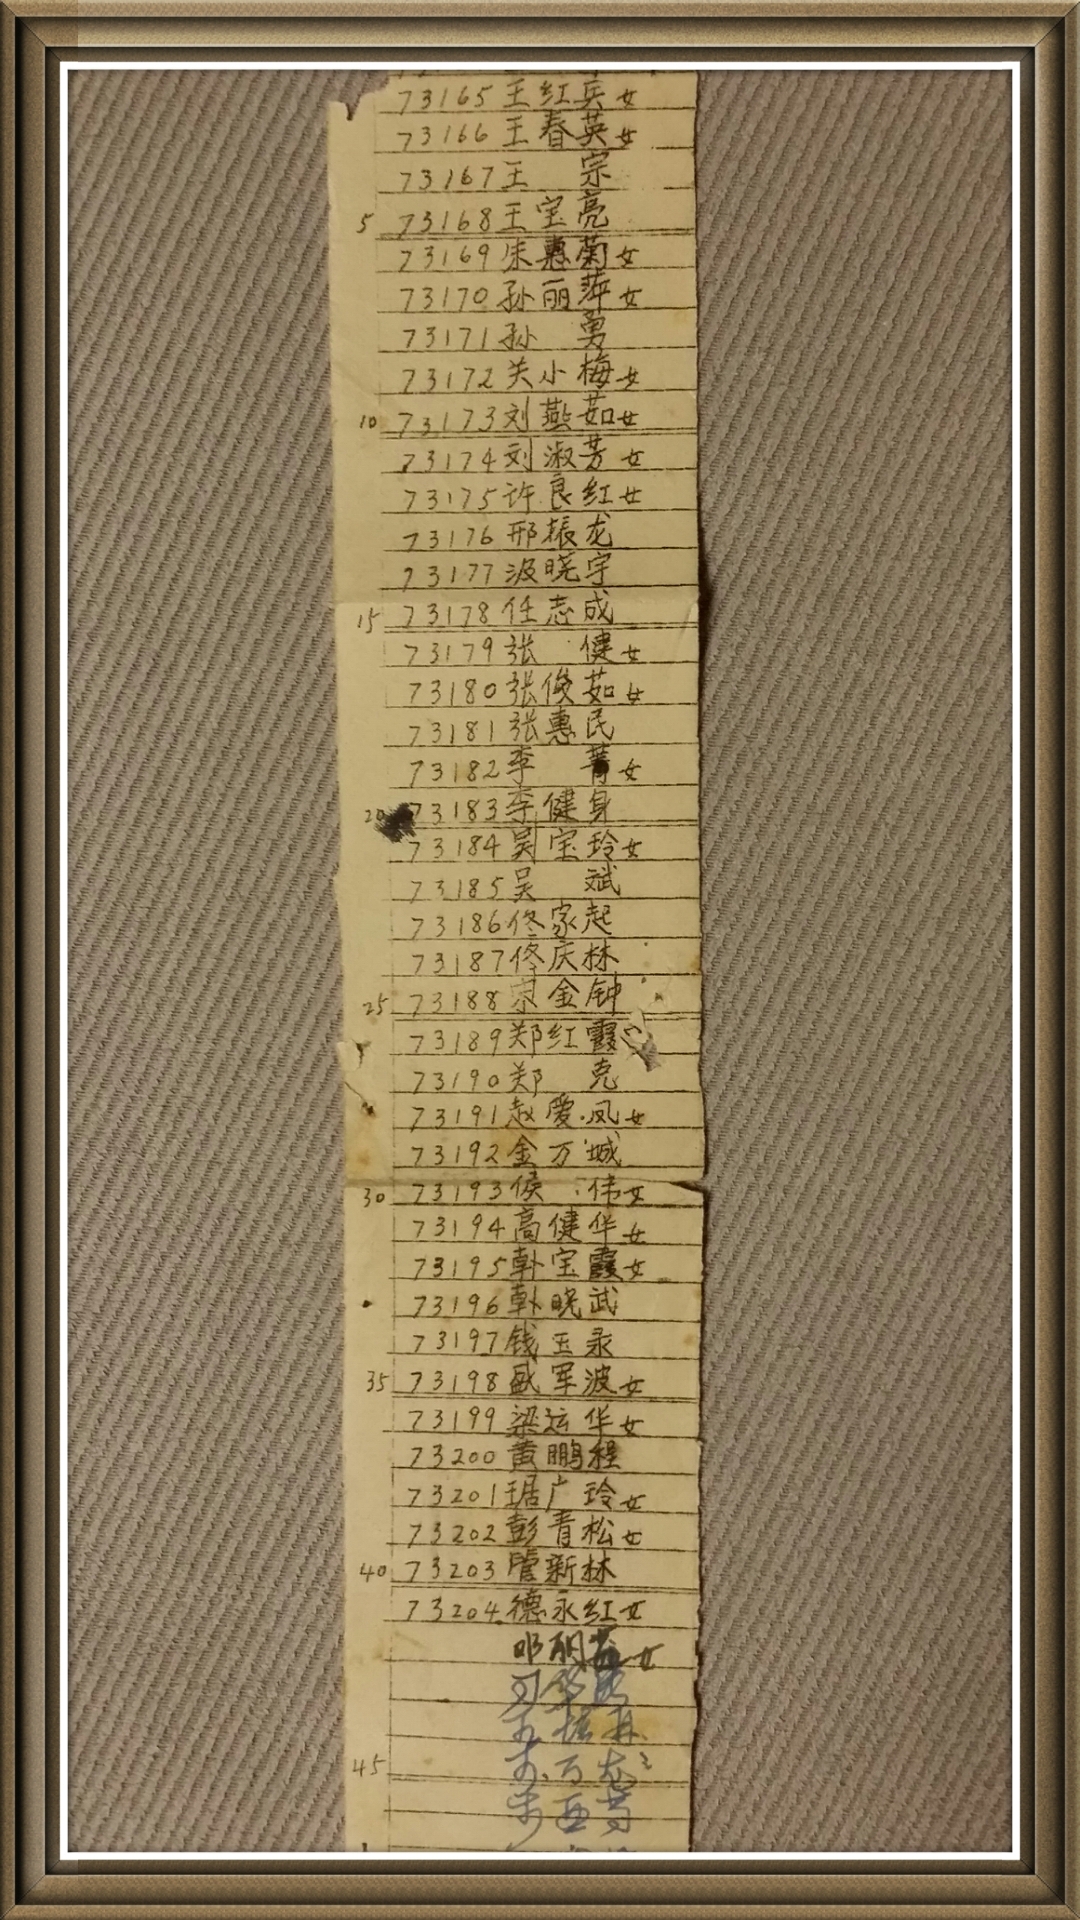 73165 王红兵 女
73166 王春英 女
73167 王 宗
5 73168 王宝亮
73169 朱惠菊 女
73170 孙丽萍 女
73171 孙 勇
73172 关小梅 女
10 73173 刘燕茹 女
73174 刘淑芳 女
73175 许良红 女
73176 邢振龙
73177 汲晓宇
15 73178 任志成
73179 张 健 女
73180 张俊茹 女
73181 张惠民
73182 李 菁 女
20 73183 李健身
73184 吴宝玲 女
73185 吴 斌
73186 佟家起
73187 佟庆林
25 73188 宗金钟
73189 郑红霞
73190 郑 克
73191 赵爱凤 女
73192 金万城
30 73193 侯 伟 女
73194 高健华 女
73195 韩宝霞 女
73196 韩晓武
73197 钱玉录
35 73198 盛军波 女
73199 梁运华 女
73200 黄鹏程
73201 琚广玲 女
73202 彭青松 女
40 73203 管新林
73204 德永红 女
邓 女
45 万龙
西